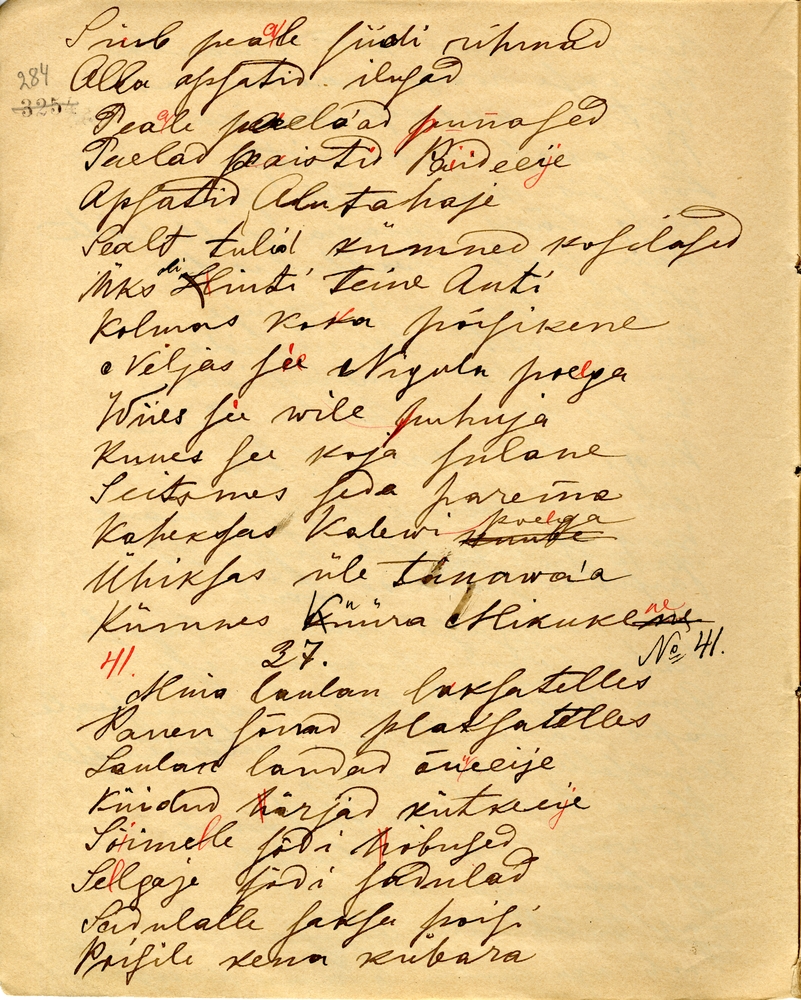 Siub peale siidi rihmad
284
Alla apsatid ilusad
325
Peale paelaad punnased
Paelad paistid Puideeije
Apsatid Alutahaje
Sealt tulid kümned kosilased
Üks oli Hinti teine Anti
Kolmas koka poisikene
Neljas see Nigula poega
Wiies see wile puhuja
Kuues see koja sulane
Seitsmes seda parema
Kaheksas Kalewi poega
Ühiksas üle tänawaa
Kümnes Küüra Mikukene
No 41.
41. 37.
Mina laulan laksatelles
Panen sõnad plaksatelles
Laulan laudad õueeije
Küüdud härjad kütkeeije
Sõimelle sõdi hobused
Selgaje sõdi sadulad
Sadulalle saksa poisi
Poisile kena kübara